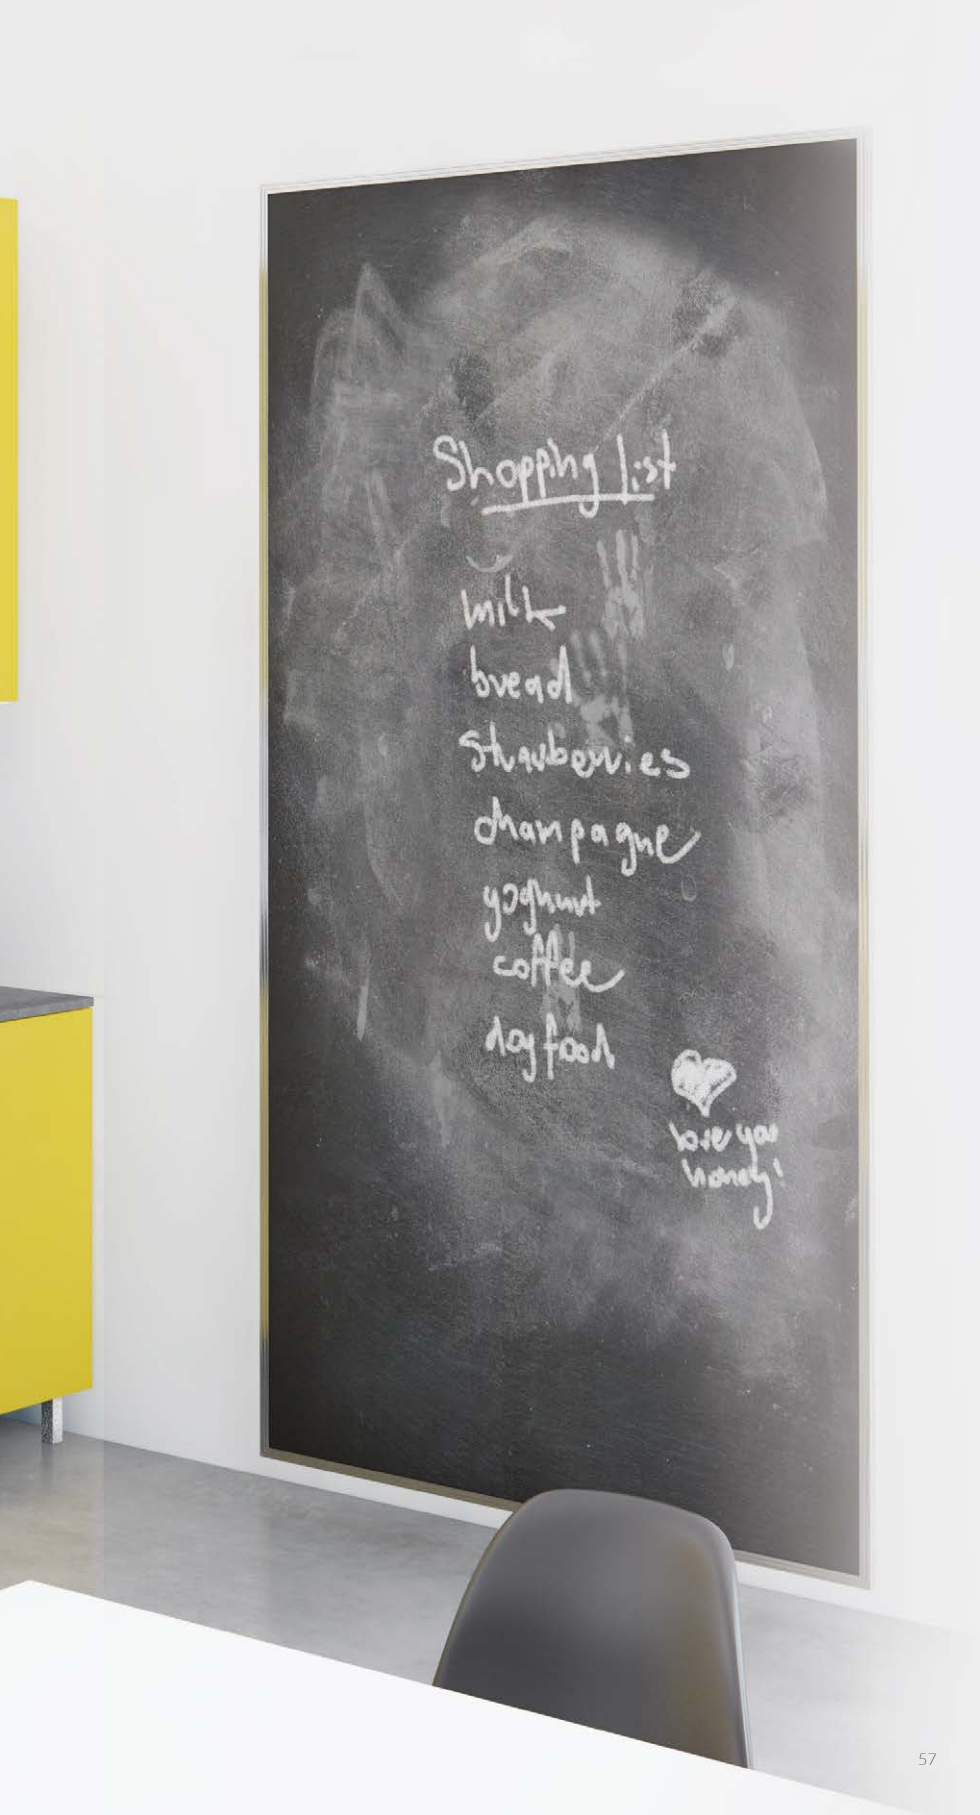 Shopping list
milk
bread
strawberries
champagne
yoghurt
coffee
dog food
love you
honey!
57